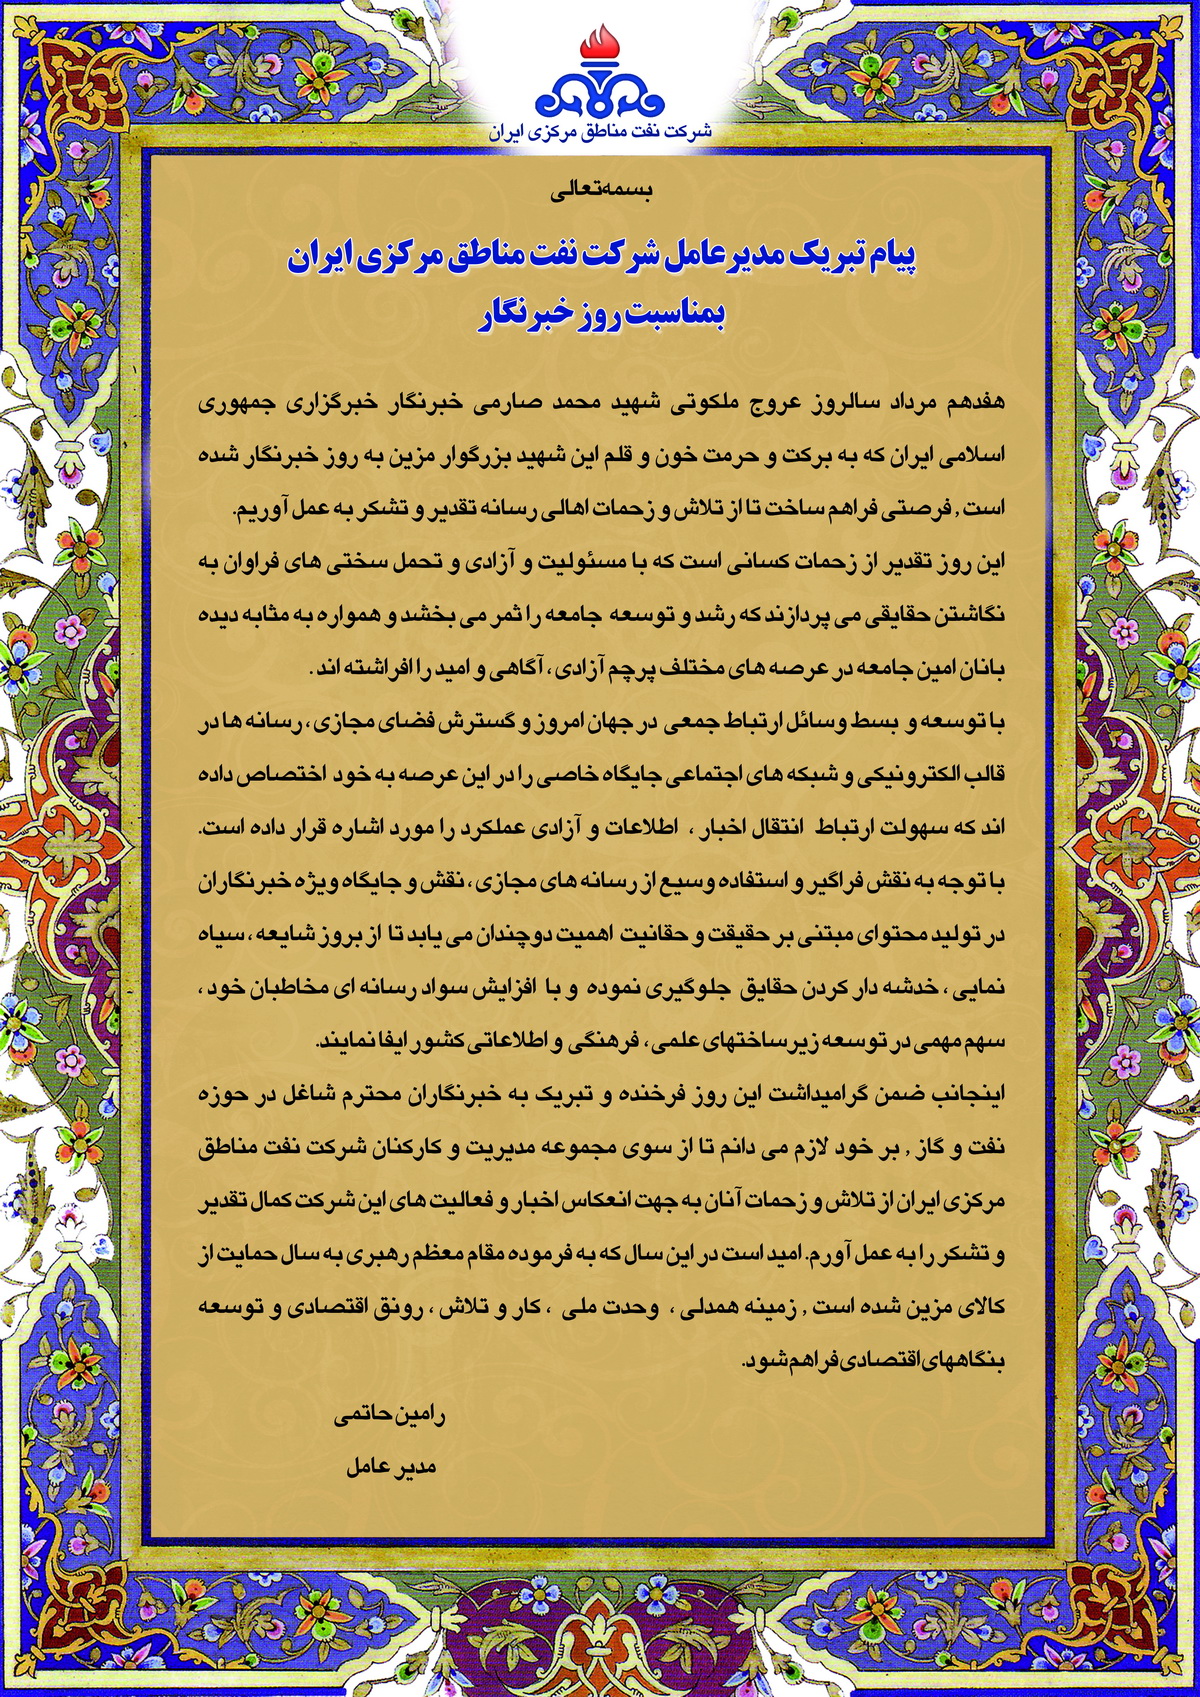 شرکت نفت مناطق مرکزی ایران
بسمه‌تعالی
پیام تبریک مدیرعامل شرکت نفت مناطق مرکزی ایران
بمناسبت روز خبرنگار
هفدهم مرداد سالروز عروج ملکوتی شهید محمد صارمی خبرنگار خبرگزاری جمهوری
اسلامی ایران که به برکت و حرمت خون و قلم این شهید بزرگوار مزین به روز خبرنگار شده
است , فرصتی فراهم ساخت تا از تلاش و زحمات اهالی رسانه تقدیر و تشکر به عمل آوریم.
این روز تقدیر از زحمات کسانی است که با مسئولیت و آزادی و تحمل سختی های فراوان به
نگاشتن حقایقی می پردازند که رشد و توسعه جامعه را ثمر می بخشد و همواره به مثابه دیده
بانان امین جامعه در عرصه های مختلف پرچم آزادی ، آگاهی و امید را افراشته اند .
با توسعه و بسط وسائل ارتباط جمعی در جهان امروز و گسترش فضای مجازی ، رسانه ها در
قالب الکترونیکی و شبکه های اجتماعی جایگاه خاصی را در این عرصه به خود اختصاص داده
اند که سهولت ارتباط انتقال اخبار ، اطلاعات و آزادی عملکرد را مورد اشاره قرار داده است.
با توجه به نقش فراگیر و استفاده وسیع از رسانه های مجازی ، نقش و جایگاه ویژه خبرنگاران
در تولید محتوای مبتنی بر حقیقت و حقانیت اهمیت دوچندان می یابد تا از بروز شایعه ، سیاه
نمایی ، خدشه دار کردن حقایق جلوگیری نموده و با افزایش سواد رسانه ای مخاطبان خود ،
سهم مهمی در توسعه زیرساختهای علمی ، فرهنگی و اطلاعاتی کشور ایفا نمایند.
اینجانب ضمن گرامیداشت این روز فرخنده و تبریک به خبرنگاران محترم شاغل در حوزه
نفت و گاز , بر خود لازم می دانم تا از سوی مجموعه مدیریت و کارکنان شرکت نفت مناطق
مرکزی ایران از تلاش و زحمات آنان به جهت انعکاس اخبار و فعالیت های این شرکت کمال تقدیر
و تشکر را به عمل آورم. امید است در این سال که به فرموده مقام معظم رهبری به سال حمایت از
کالای مزین شده است , زمینه همدلی ، وحدت ملی ، کار و تلاش ، رونق اقتصادی و توسعه
بنگاههای اقتصادی فراهم شود.
رامین حاتمی
مدیر عامل